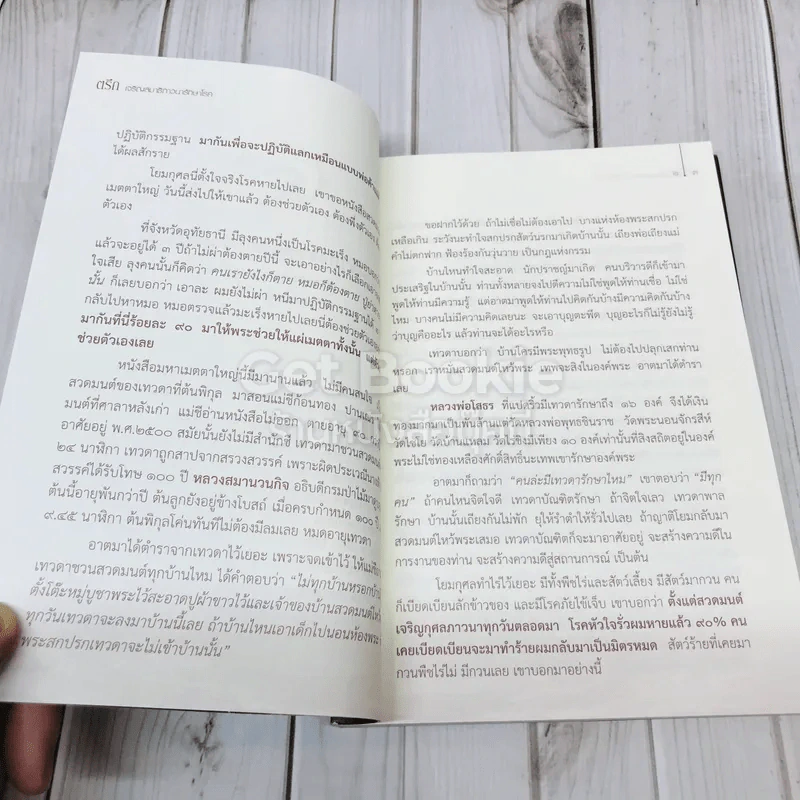 ตรึก เจริญสมาธิภาวนารักษาโรค
ปฏิบัติกรรมฐาน มากันเพื่อจะปฏิบัติแลกเหมือนแบบพ่อค้า
ได้ผลสักราย
โยมกุศลนี่ตั้งใจจริงโรคหายไปเลย เขาขอหนังสือสวด
เมตตาใหญ่ วันนี้ส่งไปให้เขาแล้ว ต้องช่วยตัวเอง ต้องพึ่งตัวเอง
ตัวเอง
ที่จังหวัดอุทัยธานี มีลุงคนหนึ่งเป็นโรคมะเร็ง หมอบอก
แล้วจะอยู่ได้ ๓ ปีถ้าไม่ผ่าต้องตายปีนี้ จะเอาอย่างไรก็เลือก
ใจเสีย ลุงคนนั้นก็คิดว่า คนเรายังไงก็ตาย หมอก็ต้องตาย
นั้น ก็เลยบอกว่า เอาละ ผมยังไม่ผ่า หนีมาปฏิบัติกรรมฐานได้
กลับไปหาหมอ หมอตรวจแล้วมะเร็งหายไปเลยนี่ต้องช่วยตัวเอง
มากันที่นี่ร้อยละ ๙๐ มาให้พระช่วยให้แผ่เมตตาทั้งนั้น
ช่วยตัวเองเลย
หนังสือมหาเมตตาใหญ่นี้มีมานานแล้ว ไม่มีคนสนใจ
สวดมนต์ของเทวดาที่ต้นพิกุล มาสอนแม่ชีก้อนทอง ปาน
มนต์ที่ศาลาหลังเก่า แม่ชีอ่านหนังสือไม่ออก ตายอายุ ๙๐
อาศัยอยู่ พ.ศ.๒๕๐๐ สมัยนั้นยังไม่มีสำนักชี เทวดามาชวนสวดมนต์
๒๔ นาฬิกา เทวดาถูกสาปจากสรวงสวรรค์ เพราะผิดประเวณี
สวรรค์ได้รับโทษ ๑๐๐ ปี หลวงสมานวนกิจ อธิบดีกรมป่าไม้มาดู
ต้นนี้อายุพันกว่าปี ต้นลูกยังอยู่ข้างโบสถ์ เมื่อครบกำหนด ๑๐๐ ปี
๙.๔๕ นาฬิกา ต้นพิกุลโค่นทันทีไม่ต้องมีลมเลย หมดอายุเทวดา
อาตมาได้ตำราจากเทวดาไว้เยอะ เพราะจดเข้าไว้ ให้แม่ชี
เทวดาชวนสวดมนต์ทุกบ้านไหม ได้คำตอบว่า “ไม่ทุกบ้านหรอก
ตั้งโต๊ะหมู่บูชาพระไว้สะอาดปูผ้าขาวไว้และเจ้าของบ้านสวดมนต์ไหว้
ทุกวันเทวดาจะลงมาบ้านนี้เลย ถ้าบ้านไหนเอาเด็กไปนอนห้องพระ
พระสกปรกเทวดาจะไม่เข้าบ้านนั้น”
๓
ขอฝากไว้ด้วย ถ้าไม่เชื่อไม่ต้องเอาไป บางแห่งห้องพระสกปรก
เหลือเกิน ระวังนะทำใจสกปรกสัตว์นรกมาเกิดบ้านนั้น เถียงพ่อเถียงแม่
คำไม่ตกฟาก ฟ้องร้องกันวุ่นวาย เป็นกฎแห่งกรรม
บ้านไหนทำใจสะอาด นักปราชญ์มาเกิด คนบริวารดีก็เข้ามา
ประเสริฐในบ้านนั้น ท่านทั้งหลายจงไปตีความไม่ใช่พูดให้ท่านเชื่อ ไม่ใช่
พูดให้ท่านมีความรู้ แต่อาตมาพูดให้ท่านไปคิดกันบ้างมีความคิดกันบ้าง
ไหม บางคนไม่มีความคิดเลยนะ จะเอาบุญตะพืด บุญอะไรก็ไม่รู้ยังไม่รู้
ว่าบุญคืออะไร แล้วท่านจะได้อะไรหรือ
เทวดาบอกว่า บ้านใครมีพระพุทธรูป ไม่ต้องไปปลุกเสกท่าน
หรอก เราหมั่นสวดมนต์ไหว้พระ เทพจะสิงในองค์พระ อาตมาได้ตำรา
เลย
หลวงพ่อโสธร ที่แปดริ้วมีเทวดารักษาถึง ๑๖ องค์ จึงได้เงิน
ทองมากมายเป็นพันล้าน แต่วัดหลวงพ่อพุทธชินราช วัดพระนอนจักรสีห์
วัดไร่ขิง วัดบ้านแหลม วัดไร่ขิงมีเพียง ๑๐ องค์เท่านั้นที่สิงสถิตอยู่ในองค์
พระไม่ใช่ทองเหลืองศักดิ์สิทธิ์นะเทพเขารักษาองค์พระ
อาตมาก็ถามว่า “คนล่ะมีเทวดารักษาไหม” เขาตอบว่า “มีทุก
คน” ถ้าคนไหนจิตใจดี เทวดาบัณฑิตรักษา ถ้าจิตใจเลว เทวดาพาล
รักษา บ้านนั้นเถียงกันไม่พัก ยุให้รำตำให้รั่วไปเลย ถ้าญาติโยมกลับมา
สวดมนต์ไหว้พระเสมอ เทวดาบัณฑิตก็จะมาอาศัยอยู่ จะสร้างความดีใน
การงานของท่าน จะสร้างความดีสู่สถานการณ์ เป็นต้น
โยมกุศลทำไร่ไว้เยอะ มีทั้งพืชไร่และสัตว์เลี้ยง มีสัตว์มากวน คน
ก็เบียดเบียนลักข้าวของ และมีโรคภัยไข้เจ็บ เขาบอกว่า ตั้งแต่สวดมนต์
เจริญกุศลภาวนาทุกวันตลอดมา โรคหัวใจรั่วผมหายแล้ว ๙๐% คน
เคยเบียดเบียนจะมาทำร้ายผมกลับมาเป็นมิตรหมด สัตว์ร้ายที่เคยมา
กวนพืชไร่ไม่ มีกวนเลย เขาบอกมาอย่างนี้
Got Bookie